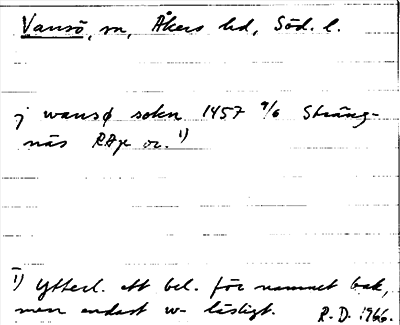 Vansö, sn, Åkers hd, Söd. l.
j wansø sokn 1457 9/6 Sträng-
näs RAp or. 1)
1) Ytterl. ett bel. för namnet bak,
men endast w- läsligt.
R.D. 1966.